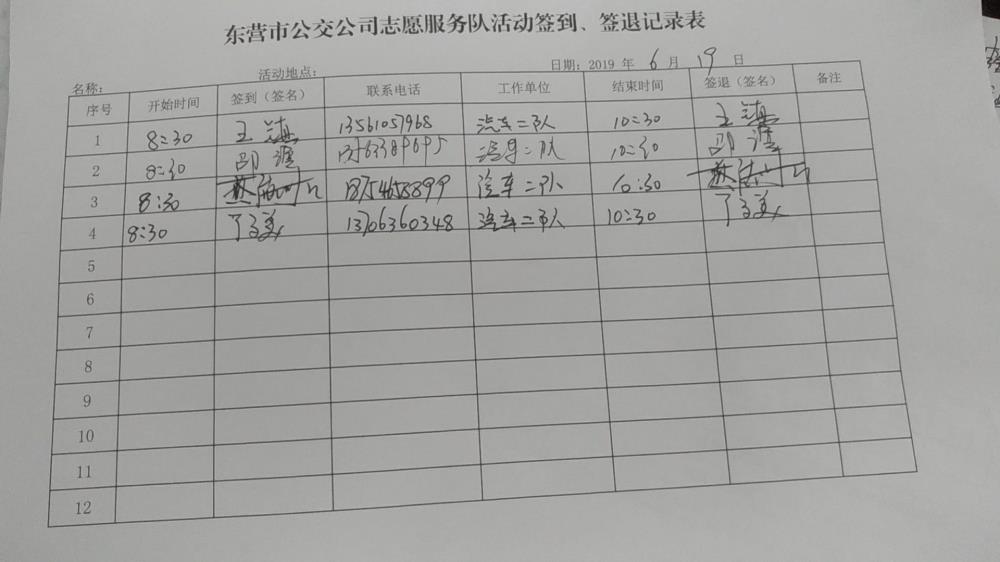 东营市公交公司志愿服务队活动签到、签退记录表
名称： 活动地点： 日期：2019 年 6 月 19 日
序号 开始时间 签到（签名） 联系电话 工作单位 结束时间 签退（签名） 备注
1 8:30 王 13561057968 汽车二队 10:30 王
2 8:30 邵 汽车二队 10:30 邵
3 8:30 18754658899 汽车二队 10:30
4 8:30 丁 13706360348 汽车二队 10:30 丁
5
6
7
8
9
10
11
12